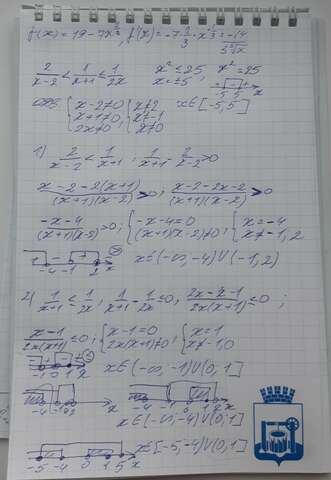 f(x) = 19 - 7x^(2/3), f'(x) = -7·2/3·x^(-1/3) = -14/(3∛x)
2/(x-2) < 1/(x+1) ≤ 1/(2x)    x² ≤ 25,  x² = 25
x = ±5    -5 5 x
ОДЗ { x-2≠0 { x≠2    x∈[-5,5]
x+1≠0, x≠-1
2x≠0 x≠0
1) 2/(x-2) < 1/(x+1) ; 1/(x+1) - 2/(x-2) > 0
(x-2-2(x+1))/((x+1)(x-2)) > 0, (x-2-2x-2)/((x+1)(x-2)) > 0
(-x-4)/((x+1)(x-2)) > 0; { -x-4=0 { x=-4
(x+1)(x-2)≠0, x≠-1, 2
-4 -1 2 x    x∈(-∞,-4)∪(-1,2)
2) 1/(x+1) ≤ 1/(2x), 1/(x+1) - 1/(2x) ≤ 0, (2x-x-1)/(2x(x+1)) ≤ 0 ;
(x-1)/(2x(x+1)) ≤ 0; { x-1=0 { x=1
2x(x+1)≠0, x≠-1,0
-1 0 1 x    x∈(-∞,-1)∪(0,1]
-4 -1 2 x    -4 -1 0 1 2 x
x∈(-∞,-4)∪(0,1]
-5 -4 0 1 5 x    x∈[-5,-4)∪(0,1]